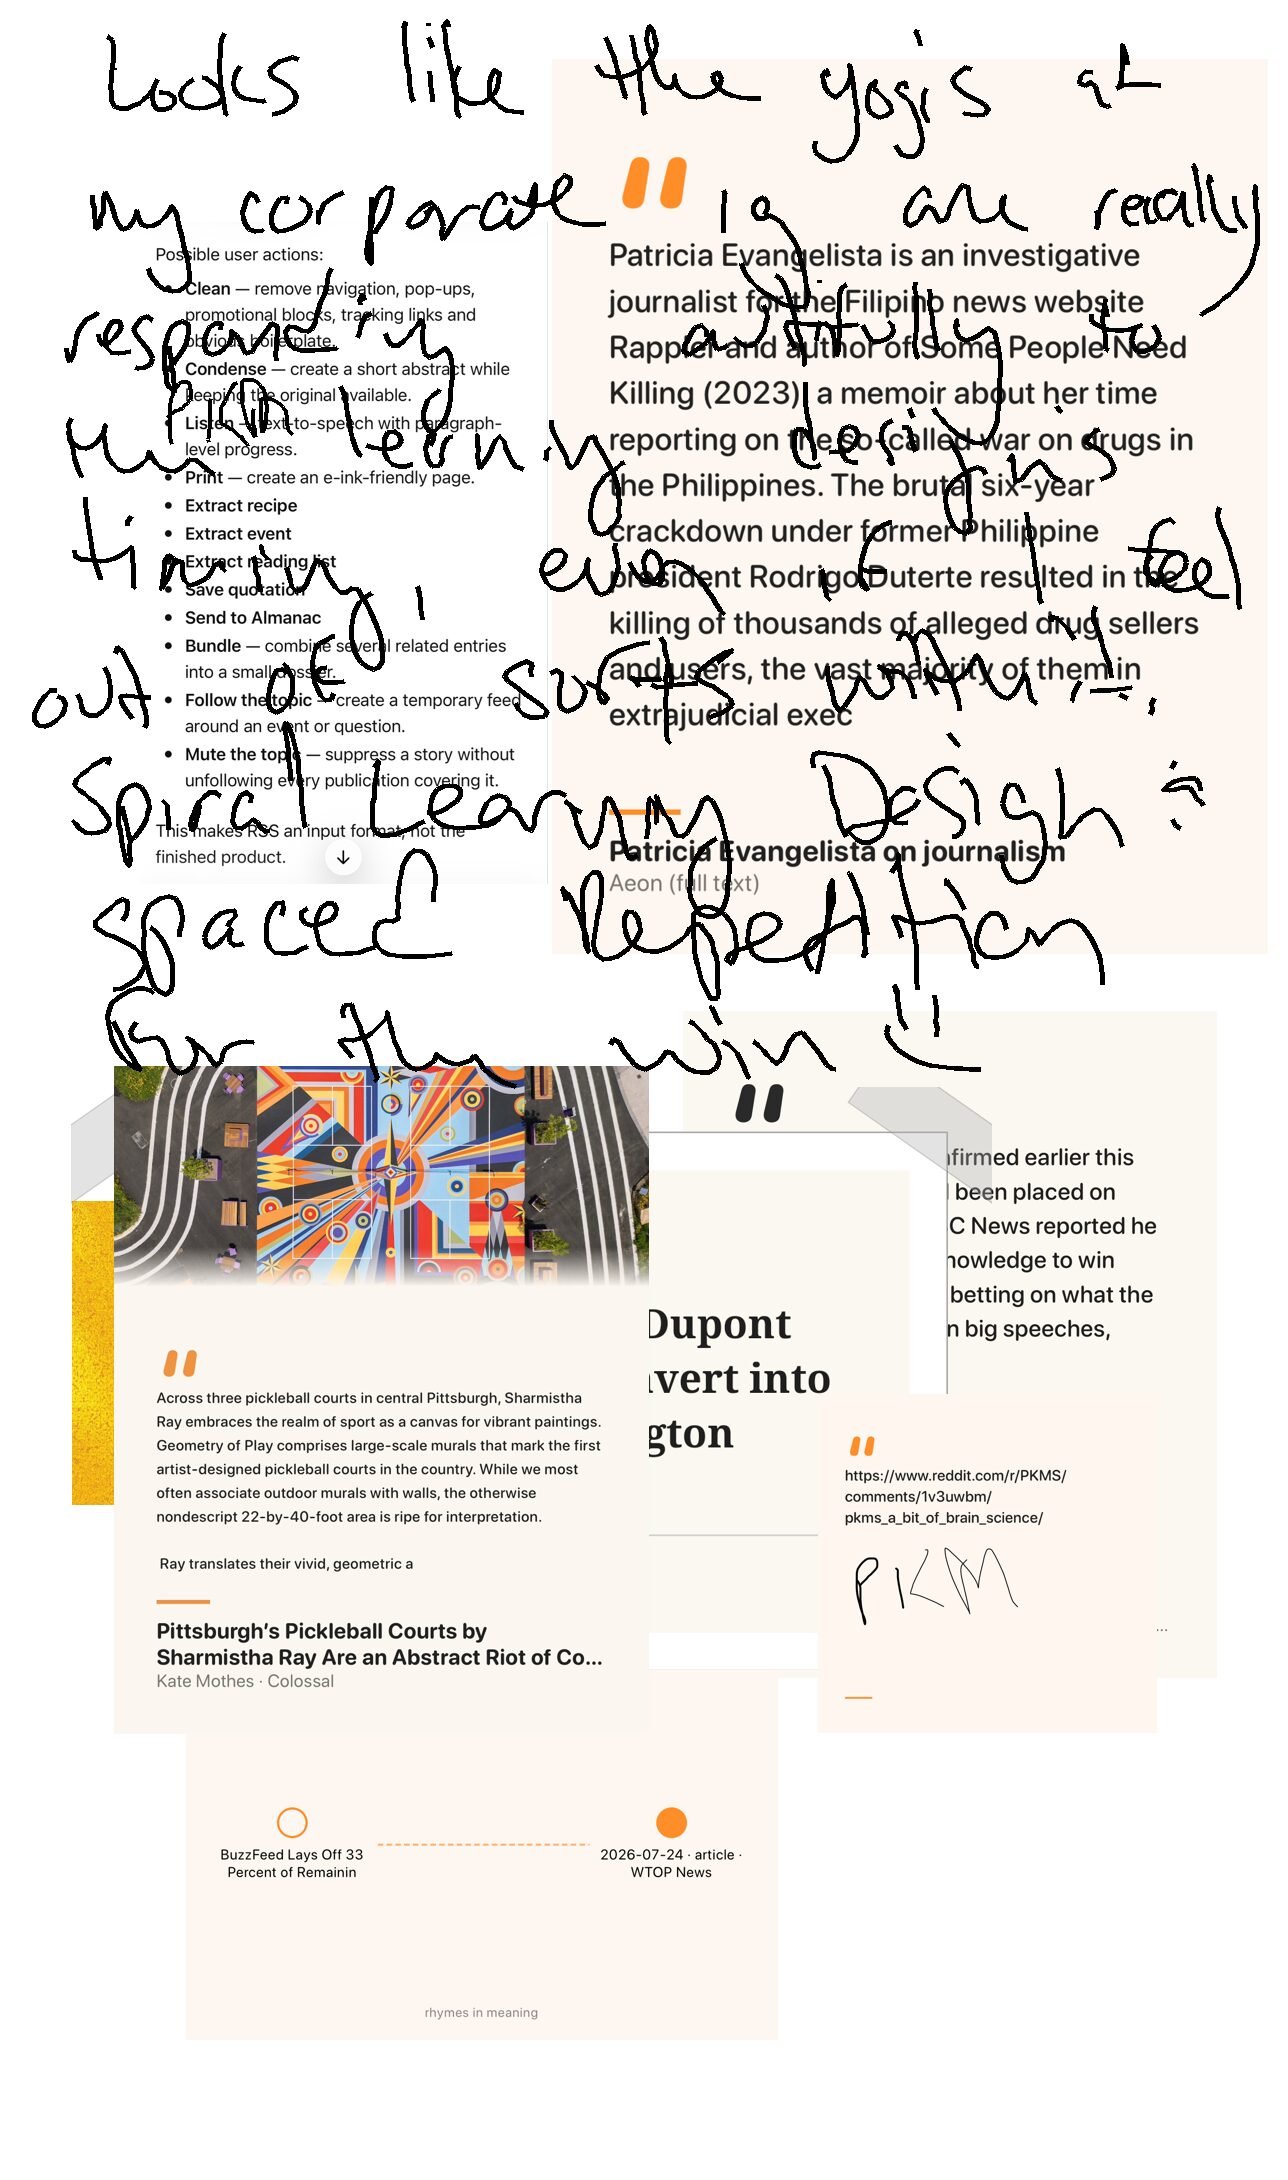 Looks like the yogis at
my corporate ig are really
responding artfully to
the PKM learning designs
timing, even if I feel
out of sorts with it.
Spiral Learning Design =
Spaced Repetition
for the win
Possible user actions:
Clean — remove navigation, pop-ups,
promotional blocks, tracking links and
obvious boilerplate.
Condense — create a short abstract while
keeping the original available.
Listen — text-to-speech with paragraph-
level progress.
Print — create an e-ink-friendly page.
Extract recipe
Extract event
Extract reading list
Save quotation
Send to Almanac
Bundle — combine several related entries
into a small dossier.
Follow the topic — create a temporary feed
around an event or question.
Mute the topic — suppress a story without
unfollowing every publication covering it.
This makes RSS an input format, not the
finished product.
Patricia Evangelista is an investigative
journalist for the Filipino news website
Rappler and author of Some People Need
Killing (2023), a memoir about her time
reporting on the so-called war on drugs in
the Philippines. The brutal six-year
crackdown under former Philippine
president Rodrigo Duterte resulted in the
killing of thousands of alleged drug sellers
and users, the vast majority of them in
extrajudicial exec
Patricia Evangelista on journalism
Aeon (full text)
Across three pickleball courts in central Pittsburgh, Sharmistha
Ray embraces the realm of sport as a canvas for vibrant paintings.
Geometry of Play comprises large-scale murals that mark the first
artist-designed pickleball courts in the country. While we most
often associate outdoor murals with walls, the otherwise
nondescript 22-by-40-foot area is ripe for interpretation.
Ray translates their vivid, geometric a
Pittsburgh’s Pickleball Courts by
Sharmistha Ray Are an Abstract Riot of Co...
Kate Mothes · Colossal
Dupont
vert into
gton
firmed earlier this
been placed on
C News reported he
nowledge to win
betting on what the
n big speeches,
...
https://www.reddit.com/r/PKMS/
comments/1v3uwbm/
pkms_a_bit_of_brain_science/
PKM
BuzzFeed Lays Off 33
Percent of Remainin
2026-07-24 · article ·
WTOP News
rhymes in meaning